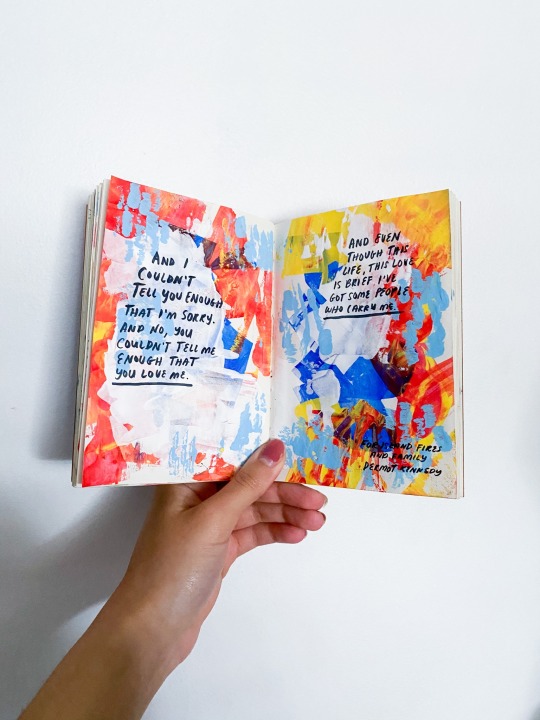 AND I
COULDN'T
TELL YOU ENOUGH
THAT I'M SORRY.
AND NO, YOU
COULDN'T TELL ME
ENOUGH THAT
YOU LOVE ME.
AND EVEN
THOUGH THIS
LIFE, THIS LOVE
IS BRIEF I'VE
GOT SOME PEOPLE
WHO CARRY ME.
FOR ISLAND FIRES
AND FAMILY
- DERMOT KENNEDY